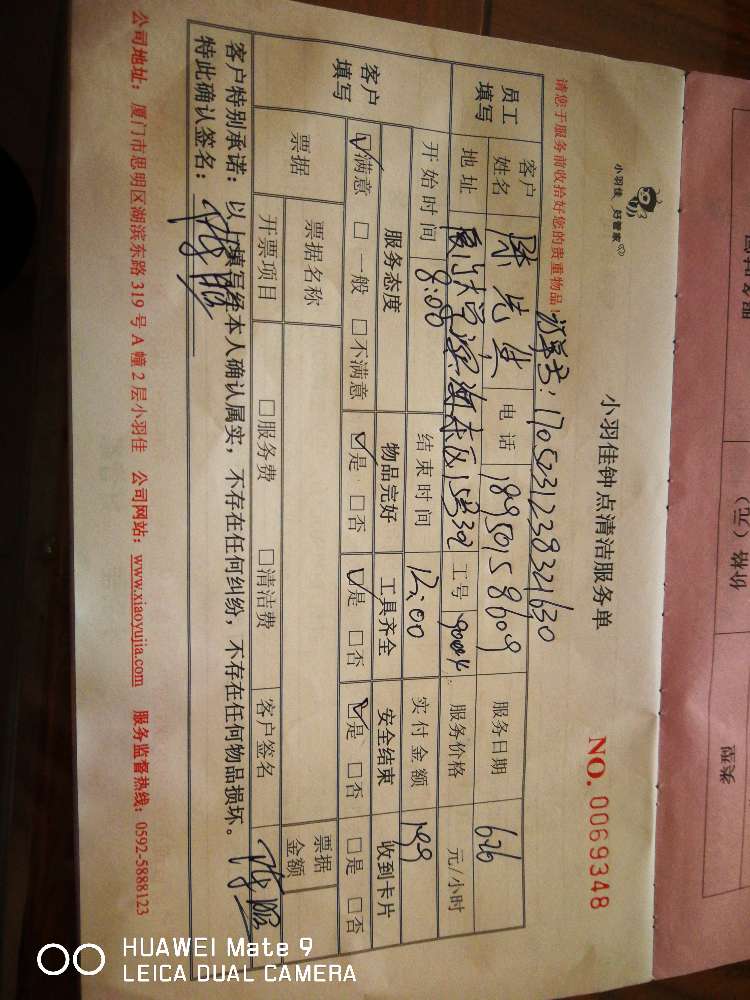 小羽佳 好管家
小羽佳钟点清洁服务单
NO. 0069348
请您于服务前收拾好您的贵重物品!
1705231238321630
员工填写
客户姓名 陈先生 电话 18950158609 服务日期 626
地址 15#302 工号 90004 服务价格 元/小时
开始时间 8:00 结束时间 12:00 实付金额 199
客户填写
服务态度 物品完好 工具齐全 安全结束 收到卡片
☑满意 □一般 □不满意 ☑是 □否 ☑是 □否 ☑是 □否 □是 □否
票据 票据名称 票据金额
开票项目 □服务费 □清洁费 客户签名
客户特别承诺:以上填写经本人确认属实,不存在任何纠纷,不存在任何物品损坏。
特此确认签名:
公司地址:厦门市思明区湖滨东路 319 号 A 幢 2 层小羽佳 公司网站:www.xiaoyujia.com 服务监督热线:0592-5888123
价格(元)
类型
HUAWEI Mate 9
LEICA DUAL CAMERA